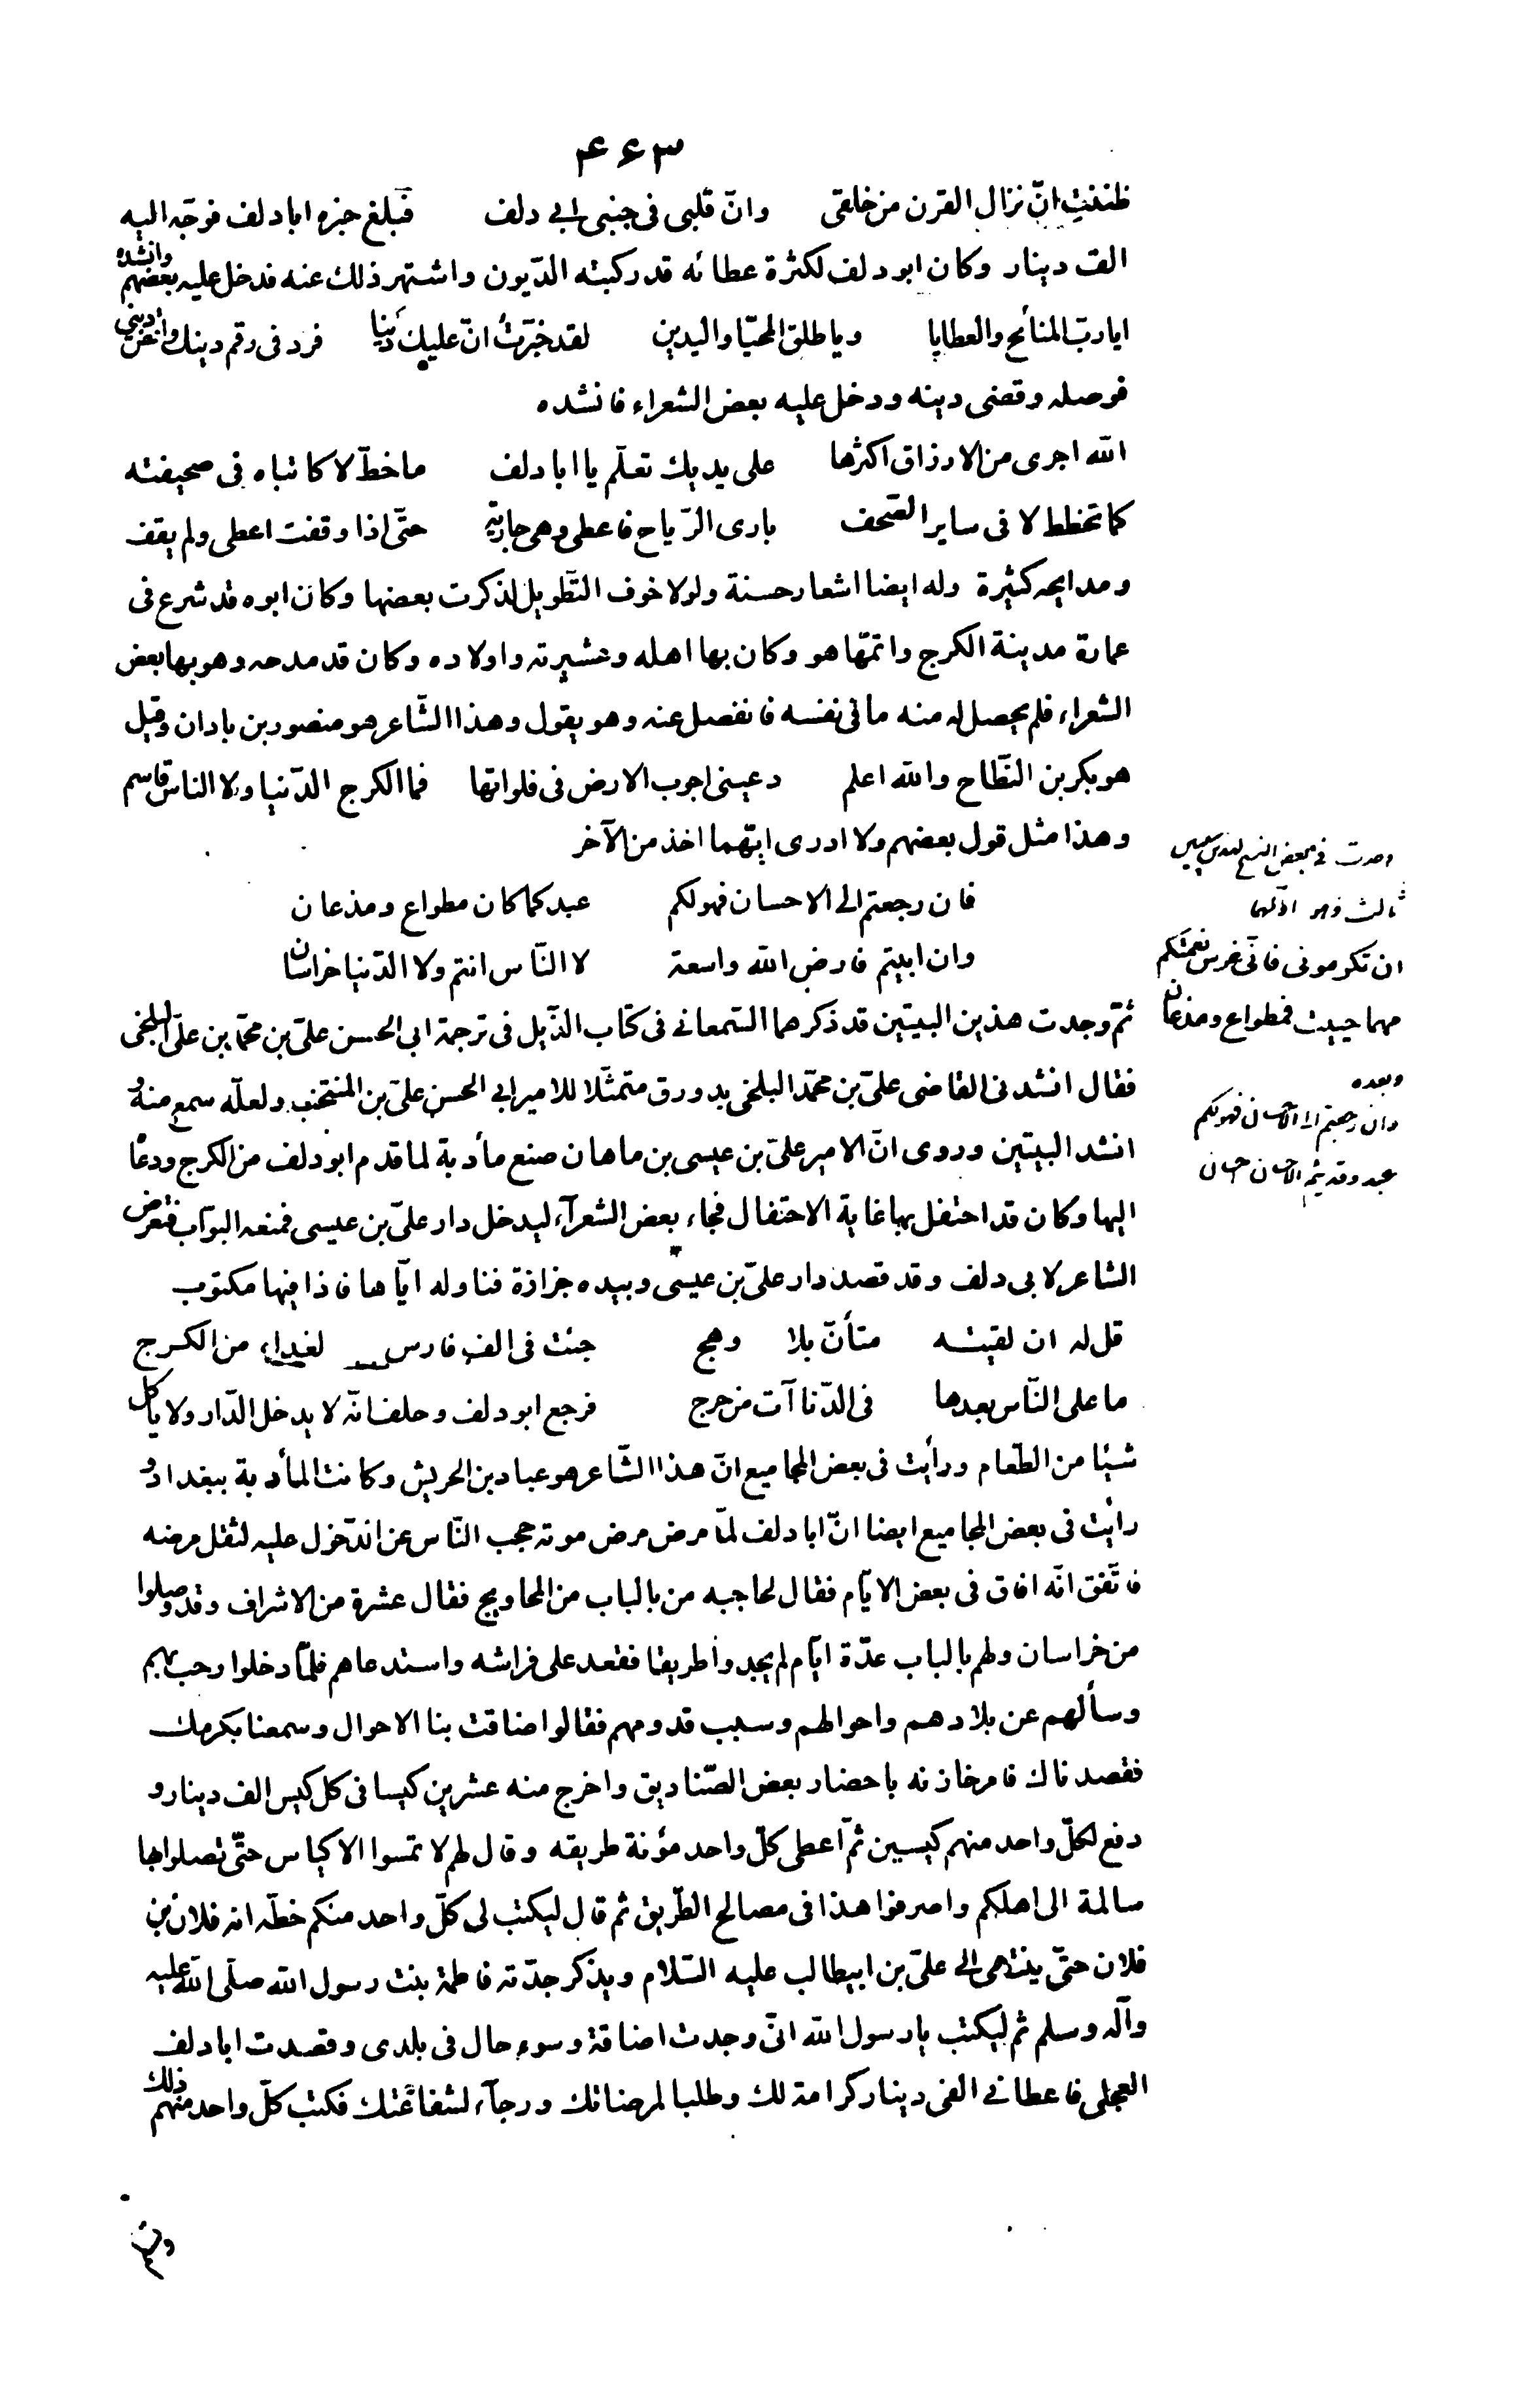 ۴۶۳
ظننت انّ نزال القرن من خلقى وانّ قلبى فى جنبى ابى دلف فبلغ خبره ابا دلف فوجّه اليه
الف دينار وكان ابو دلف لكثرة عطائه قد ركبته الدّيون واشتهر ذلك عنه فدخل عليه بعضهم وانشده
ايا ربّ المنائح والعطايا ويا طلق المحيّا واليدين لقد خبّرت انّ عليك دينا فزد فى رقم دينك واقض دينى
فوصله وقضى دينه ودخل عليه بعض الشعراء فانشده
الله اجرى من الارزاق اكثرها على يديك تعلّم يا ابا دلف ما خطّ لا كاتباه فى صحيفته
كما تخطط لا فى ساير الصّحف بارى الرّياح فاعطى وهى جارية حتّى اذا وقفت اعطى ولم يقف
ومدايحه كثيرة وله ايضا اشعار حسنة ولولا خوف التّطويل لذكرت بعضها وكان ابوه قد شرع فى
عمارة مدينة الكرج واتمّها هو وكان بها اهله وعشيرته واولاده وكان قد مدحه وهو بها بعض
الشعراء فلم يحصل له منه ما فى نفسه فانفصل عنه وهو يقول وهذا الشّاعر هو منصور بن بادان وقيل
هو بكر بن النّطاح والله اعلم دعينى اجوب الارض فى فلواتها فما الكرج الدّنيا ولا الناس قاسم
وهذا مثل قول بعضهم ولا ادرى ايّهما اخذ من الآخر
فان رجعتم الى الاحسان فهو لكم عبد كما كان مطواع ومذعان
وان ابيتم فارض الله واسعة لا النّاس انتم ولا الدّنيا خراسان
ثمّ وجدت هذين البيتين قد ذكرهما السّمعانى فى كتاب الذّيل فى ترجمة ابى الحسن علىّ بن محمّد بن علىّ البلخى
فقال انشدنى القاضى علىّ بن محمّد البلخى بدورق متمثّلا للامير ابى الحسن علىّ بن المنتخب ولعلّه سمع منه و
انشد البيتين وروى انّ الامير علىّ بن عيسى بن ماهان صنع مأدبة لما قدم ابو دلف من الكرج ودعا
اليها وكان قد احتفل بها غاية الاحتفال فجاء بعض الشعرآء ليدخل دار علىّ بن عيسى فمنعه البوّاب فتعرض
الشاعر لابى دلف وقد قصد دار علىّ بن عيسى وبيده جزازة فناوله ايّاها فاذا فيها مكتوب
قل له ان لقيته متأنّ بلا وهج جئت فى الف فارس لغداء من الكرج
ما على النّاس بعدها فى الدّناآت من حرج فرجع ابو دلف وحلف انّه لا يدخل الدّار ولا يأكل
شيئا من الطّعام ورأيت فى بعض المجاميع انّ هذا الشّاعر هو عباد بن الحريش وكانت المأدبة ببغداد و
رأيت فى بعض المجاميع ايضا انّ ابا دلف لمّا مرض مرض موته حجب النّاس عن الدّخول عليه لثقل مرضه
فاتّفق انّه افاق فى بعض الايّام فقال لحاجبه من بالباب من المحاويج فقال عشرة من الاشراف وقد وصلوا
من خراسان ولهم بالباب عدّة ايّام لم يجدوا طريقا فقعد على فراشه واستدعاهم فلمّا دخلوا رحب بهم
وسألهم عن بلادهم واحوالهم وسبب قدومهم فقالوا ضاقت بنا الاحوال وسمعنا بكرمك
فقصدناك فامر خازنه باحضار بعض الصّناديق واخرج منه عشرين كيسا فى كل كيس الف دينار و
دفع لكلّ واحد منهم كيسين ثمّ اعطى كلّ واحد مؤنة طريقه وقال لهم لا تمسوا الاكياس حتّى تصلوا بها
سالمة الى اهلكم واصرفوا هذا فى مصالح الطّريق ثم قال ليكتب لى كلّ واحد منكم خطّه انه فلان بن
فلان حتّى ينتهى الى علىّ بن ابيطالب عليه السّلام ويذكر جدّته فاطمة بنت رسول الله صلّى الله عليه
وآله وسلم ثم ليكتب يا رسول الله انّى وجدت اضاقة وسوء حال فى بلدى وقصدت ابا دلف
العجلى فاعطانى الفى دينار كرامة لك وطلبا لمرضاتك ورجآء لشفاعتك فكتب كلّ واحد منهم ذلك
وجدت فى بعض النسخ
ثالث وهو اوّلهما
ان تكرمونى فانّى غرس نعمتكم
مهما حييت فمطواع ومذعان
وبعده
وان رجعتم الى الاحسان فهو لكم
عبد